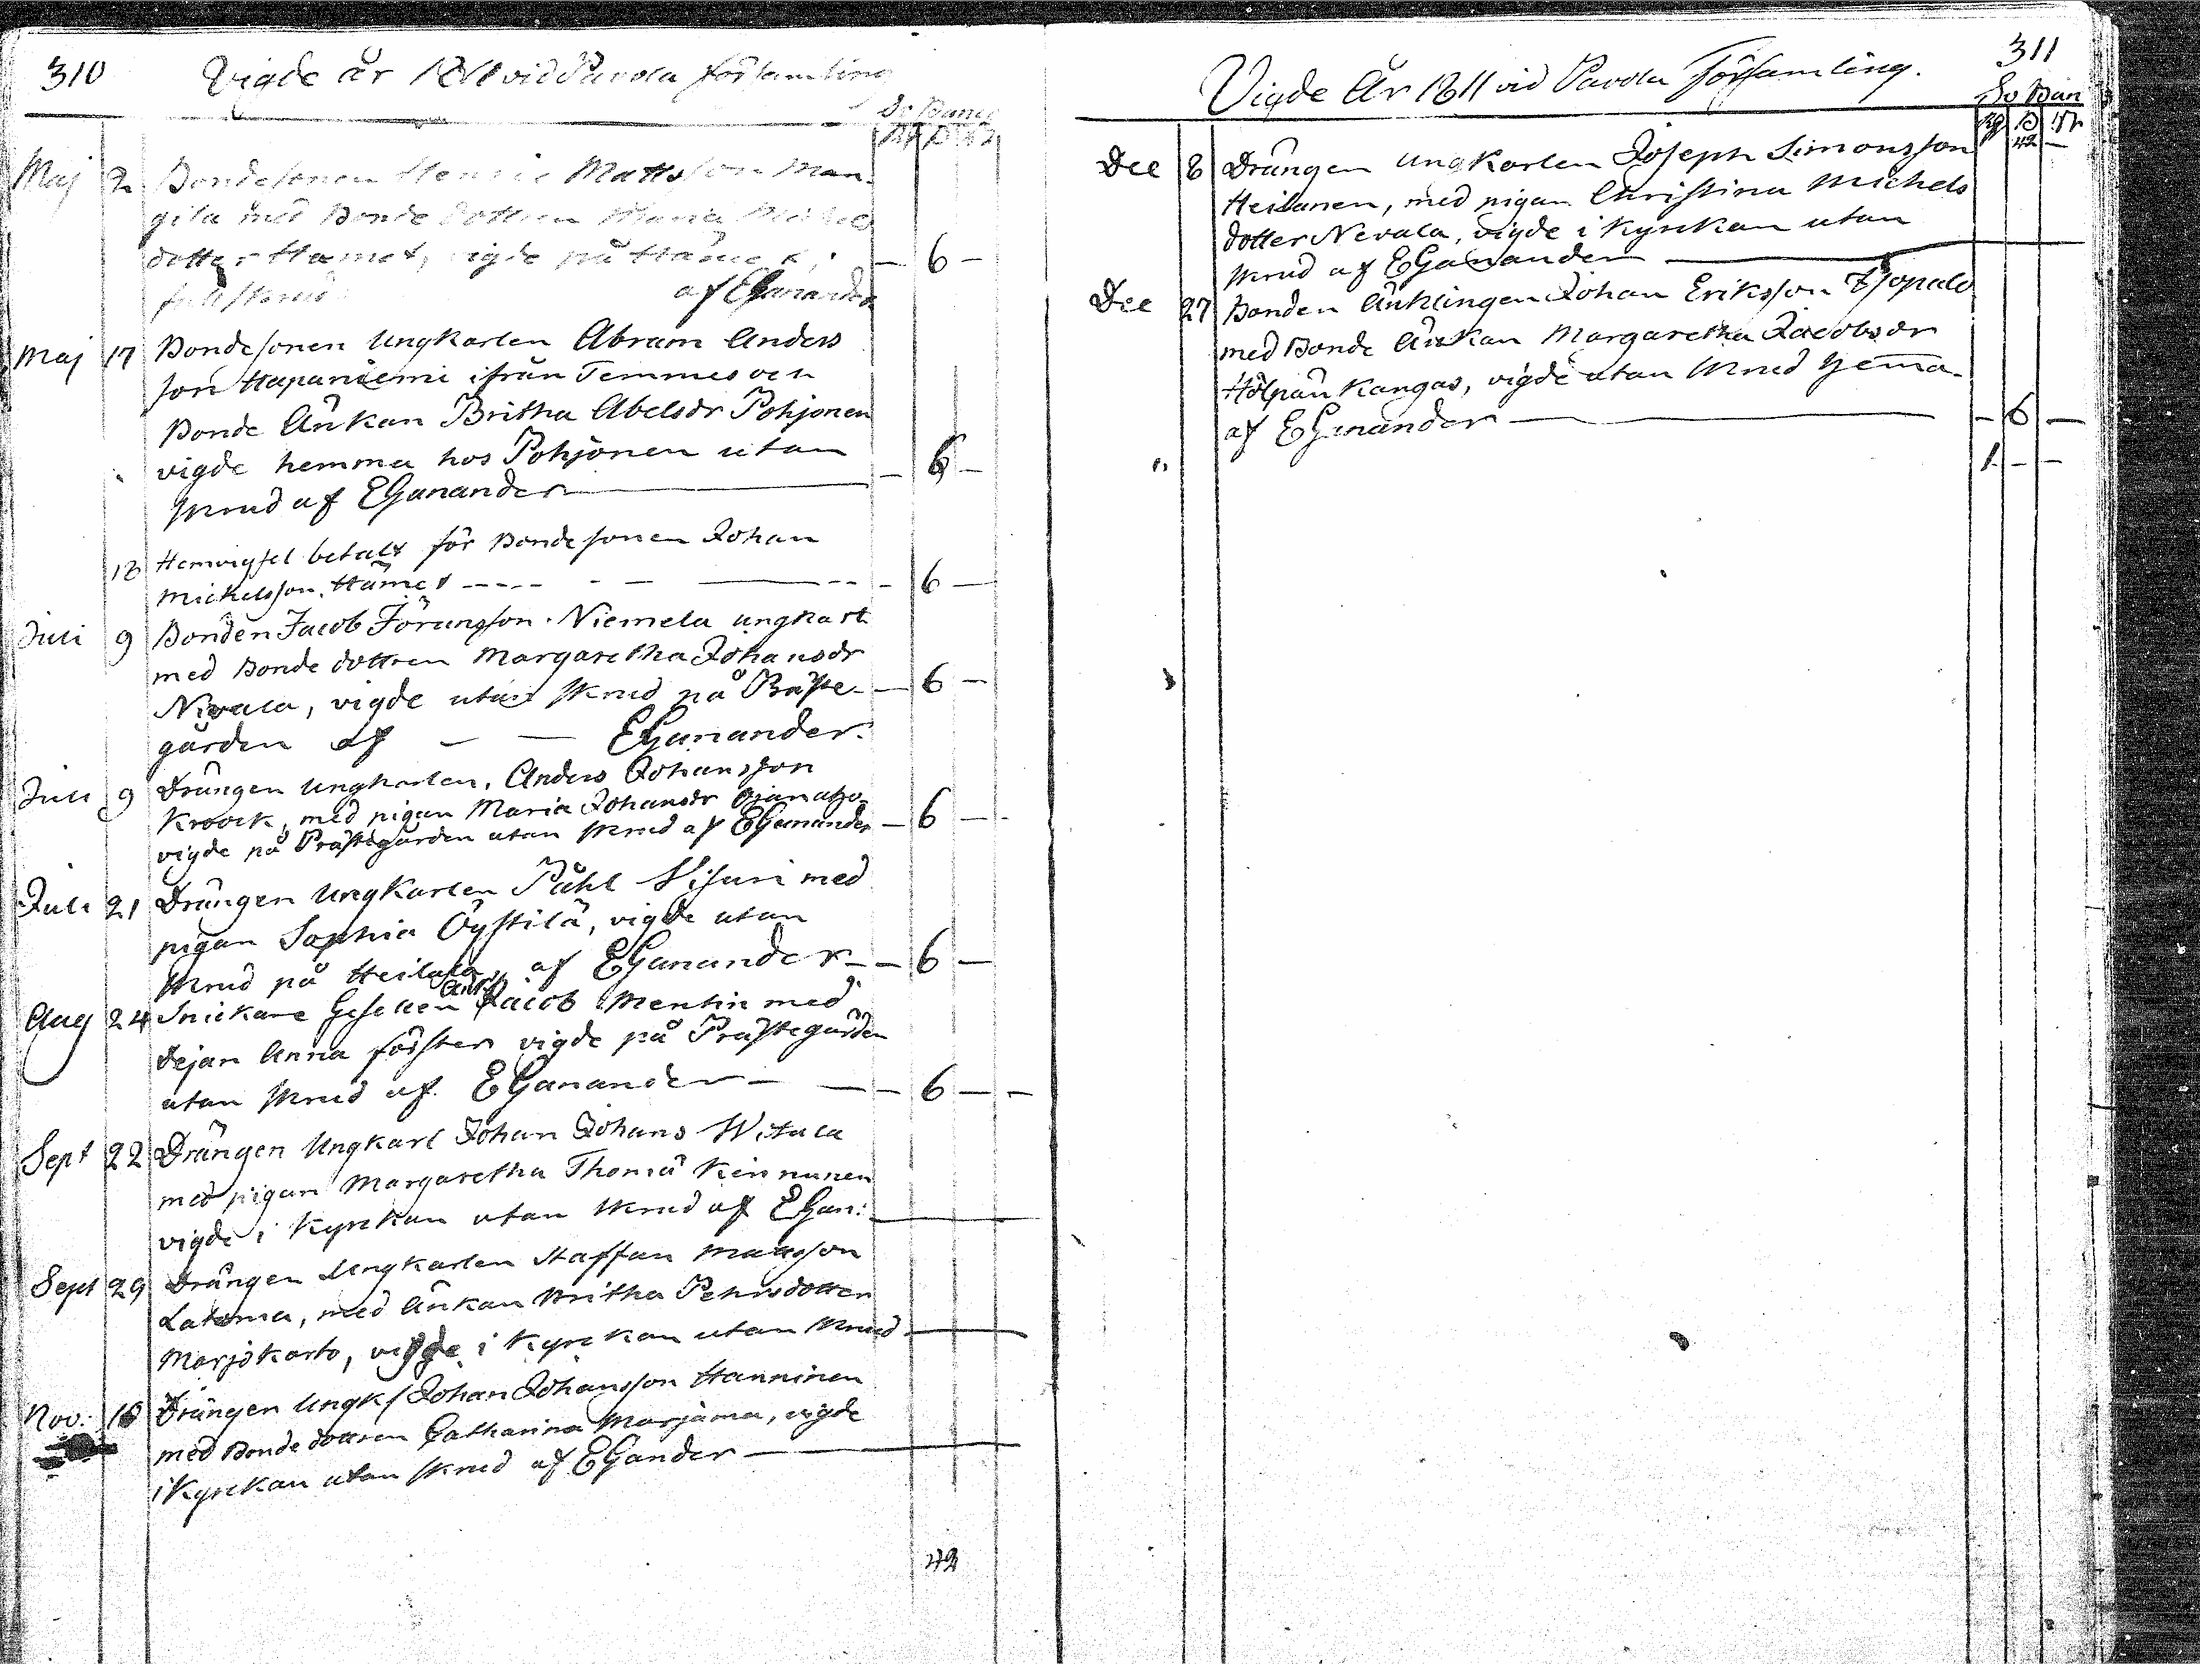 310
Vigde år 1811 vid Pavola församling
Sv Banco
Maj 2 Bondesonen Henric Mattsson Man-
gila med Bonde dottren Maria Michels
dotter Hämet, vigde på Hämet, i
af EGanander
— 6 —
Maj 17 Bondesonen Ungkarlen Abram Anders
son Hapaniemi ifrån Temmes och
Bonde Änkan Britha Abelsdr Pohjonen
vigde hemma hos Pohjonen utan
skrud af EGanander — 6 —
18 Hemvigsel betalt för Bondesonen Johan
Mickelsson Hämet — 6 —
Juli 9 Bonden Jacob Föransson Niemela ungkarl
med Bonde dottren Margaretha Johansdr
Nivala, vigde utan skrud på Präste- — 6 —
gården af — — EGanander.
Juli 9 Drängen Ungkarlen, Anders Johansson
Kroock, med pigan Maria Johansdr
vigde på Prästegården utan skrud af EGanander — 6 —
Juli 21 Drängen Ungkarlen Påhl Visuri med
pigan Sophia Öystilä, vigde utan
skrud på Heilala, af EGanander — 6 —
Aug 24 Snickare Gesellen Jacob Mentin med
dejan Anna förster vigde på Prästegården
utan skrud af EGanander — 6 —
Sept 22 Drängen Ungkarl Johan Johans Witala
med pigan Margaretha Thomä Kinnunen
vigde i Kyrckan utan skrud af EGan:
Sept 29 Drängen Ungkarlen Staffan Matsson
Latoma, med Änkan Britha Pehrsdotter
Marjokarto, vigde i Kyrckan utan skrud
Nov. 18 Drängen Ungk/ Johan Johansson Hanninen
med Bonde dottren Catharina Marjama, vigde
i Kyrckan utan skrud af EGander
42
311
Vigde År 1811 vid Pavola Församling.
Sv Ban
42 —
Dec 8 Drängen Ungkarlen Joseph Simonsson
Heilanen, med pigan Christina Michels
dotter Nevala, vigde i Kyrckan utan
skrud af EGanander
Dec 27 Bonden Änklingen Johan Eriksson
med Bonde Änkan Margaretha Jacobsdr
Hölpän Kangas, vigde utan skrud hema
af EGanander — 6 —
1. — —